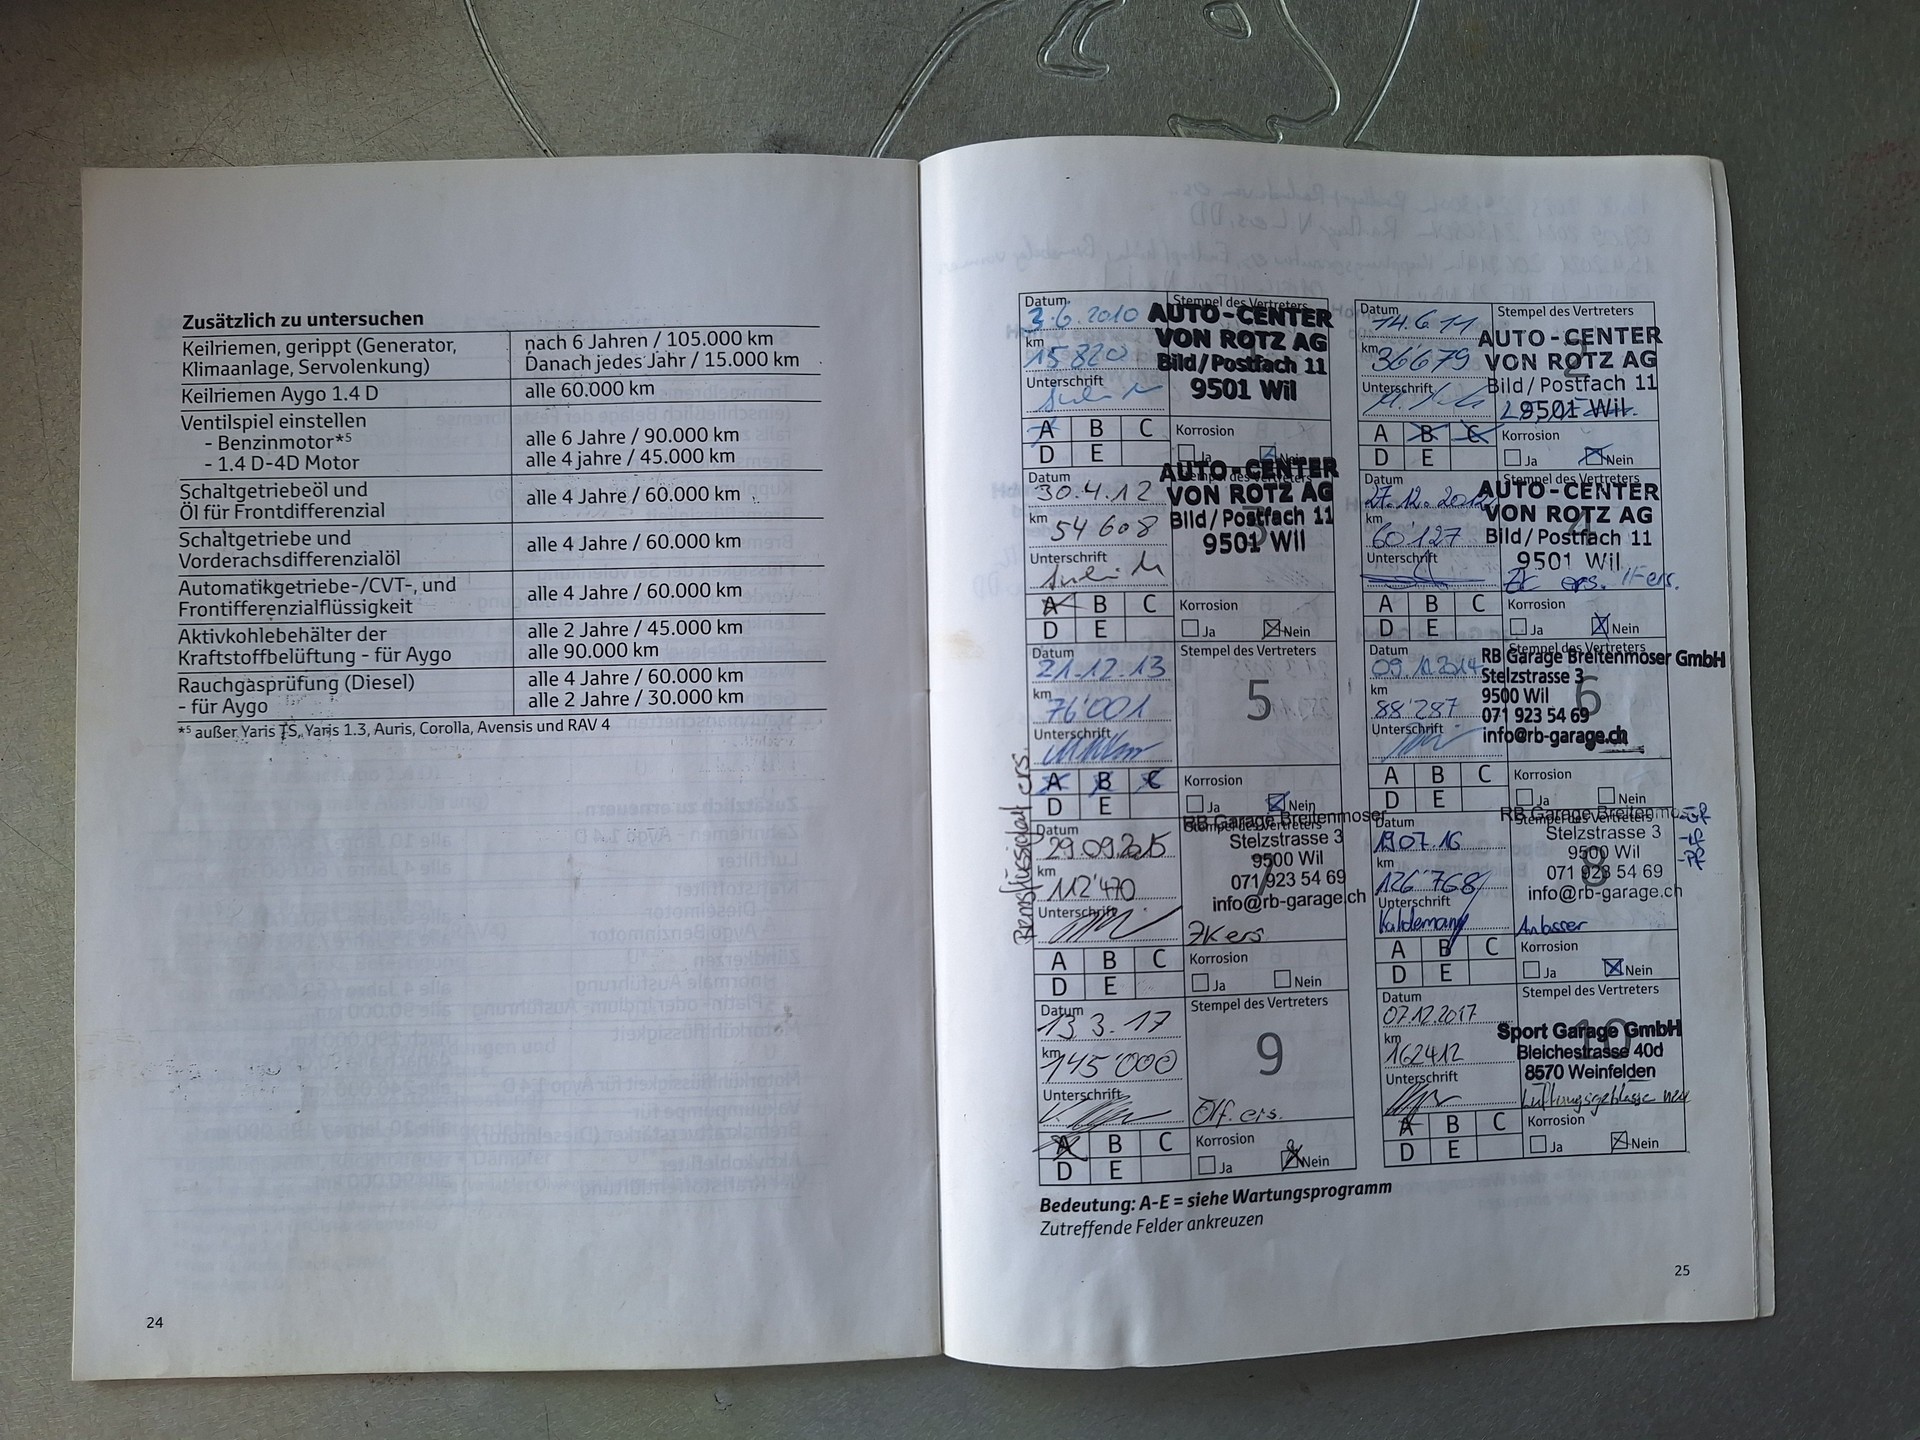 Zusätzlich zu untersuchen
Keilriemen, gerippt (Generator, Klimaanlage, Servolenkung)
nach 6 Jahren / 105.000 km
Danach jedes Jahr / 15.000 km
Keilriemen Aygo 1.4 D
alle 60.000 km
Ventilspiel einstellen
- Benzinmotor*5
alle 6 Jahre / 90.000 km
- 1.4 D-4D Motor
alle 4 jahre / 45.000 km
Schaltgetriebeöl und
Öl für Frontdifferenzial
alle 4 Jahre / 60.000 km
Schaltgetriebe und
Vorderachsdifferenzialöl
alle 4 Jahre / 60.000 km
Automatikgetriebe-/CVT-, und
Frontifferenzialflüssigkeit
alle 4 Jahre / 60.000 km
Aktivkohlebehälter der
Kraftstoffbelüftung - für Aygo
alle 2 Jahre / 45.000 km
alle 90.000 km
Rauchgasprüfung (Diesel)
- für Aygo
alle 4 Jahre / 60.000 km
alle 2 Jahre / 30.000 km
*5 außer Yaris TS, Yaris 1.3, Auris, Corolla, Avensis und RAV 4
24
Datum
3.6.2010
km
15 820
Unterschrift
Stempel des Vertreters
AUTO-CENTER
VON ROTZ AG
Bild / Postfach 11
9501 Wil
A B C
D E
Korrosion
Ja Nein
Datum
14.6.11
km
36'679
Unterschrift
Stempel des Vertreters
2
AUTO-CENTER
VON ROTZ AG
Bild / Postfach 11
9501 Wil
A B C
D E
Korrosion
Ja Nein
Datum
30.4.12
km
54 608
Unterschrift
AUTO-CENTER
VON ROTZ AG
Bild / Postfach 11
9501 Wil
3
A B C
D E
Korrosion
Ja Nein
Datum
27.12.2012
km
60'127
Unterschrift
Stempel des Vertreters
4
AUTO-CENTER
VON ROTZ AG
Bild / Postfach 11
9501 Wil
ers.
A B C
D E
Korrosion
Ja Nein
Datum
21.12.13
km
76'001
Unterschrift
Stempel des Vertreters
5
A B C
D E
Korrosion
Ja Nein
Datum
km
88'287
Unterschrift
Stempel des Vertreters
6
RB Garage Breitenmoser GmbH
Stelzstrasse 3
9500 Wil
071 923 54 69
info@rb-garage.ch
A B C
D E
Korrosion
Ja Nein
Bremsflüssigkeit ers.
Datum
29.09.2015
km
112'470
Unterschrift
Stempel des Vertreters
7
RB Garage Breitenmoser
Stelzstrasse 3
9500 Wil
071 923 54 69
info@rb-garage.ch
ZK ers
A B C
D E
Korrosion
Ja Nein
Datum
19.07.16
km
126'768
Unterschrift
Stempel des Vertreters
8
RB Garage Breitenmo
Stelzstrasse 3
9500 Wil
071 923 54 69
info@rb-garage.ch
Anlasser
A B C
D E
Korrosion
Ja Nein
Datum
13.3.17
km
145'000
Unterschrift
Stempel des Vertreters
9
Ölf. ers.
A B C
D E
Korrosion
Ja Nein
Datum
07.12.2017
km
162412
Unterschrift
Stempel des Vertreters
10
Sport Garage GmbH
Bleichestrasse 40d
8570 Weinfelden
Lüftungsgebläse neu
A B C
D E
Korrosion
Ja Nein
Bedeutung: A-E = siehe Wartungsprogramm
Zutreffende Felder ankreuzen
25